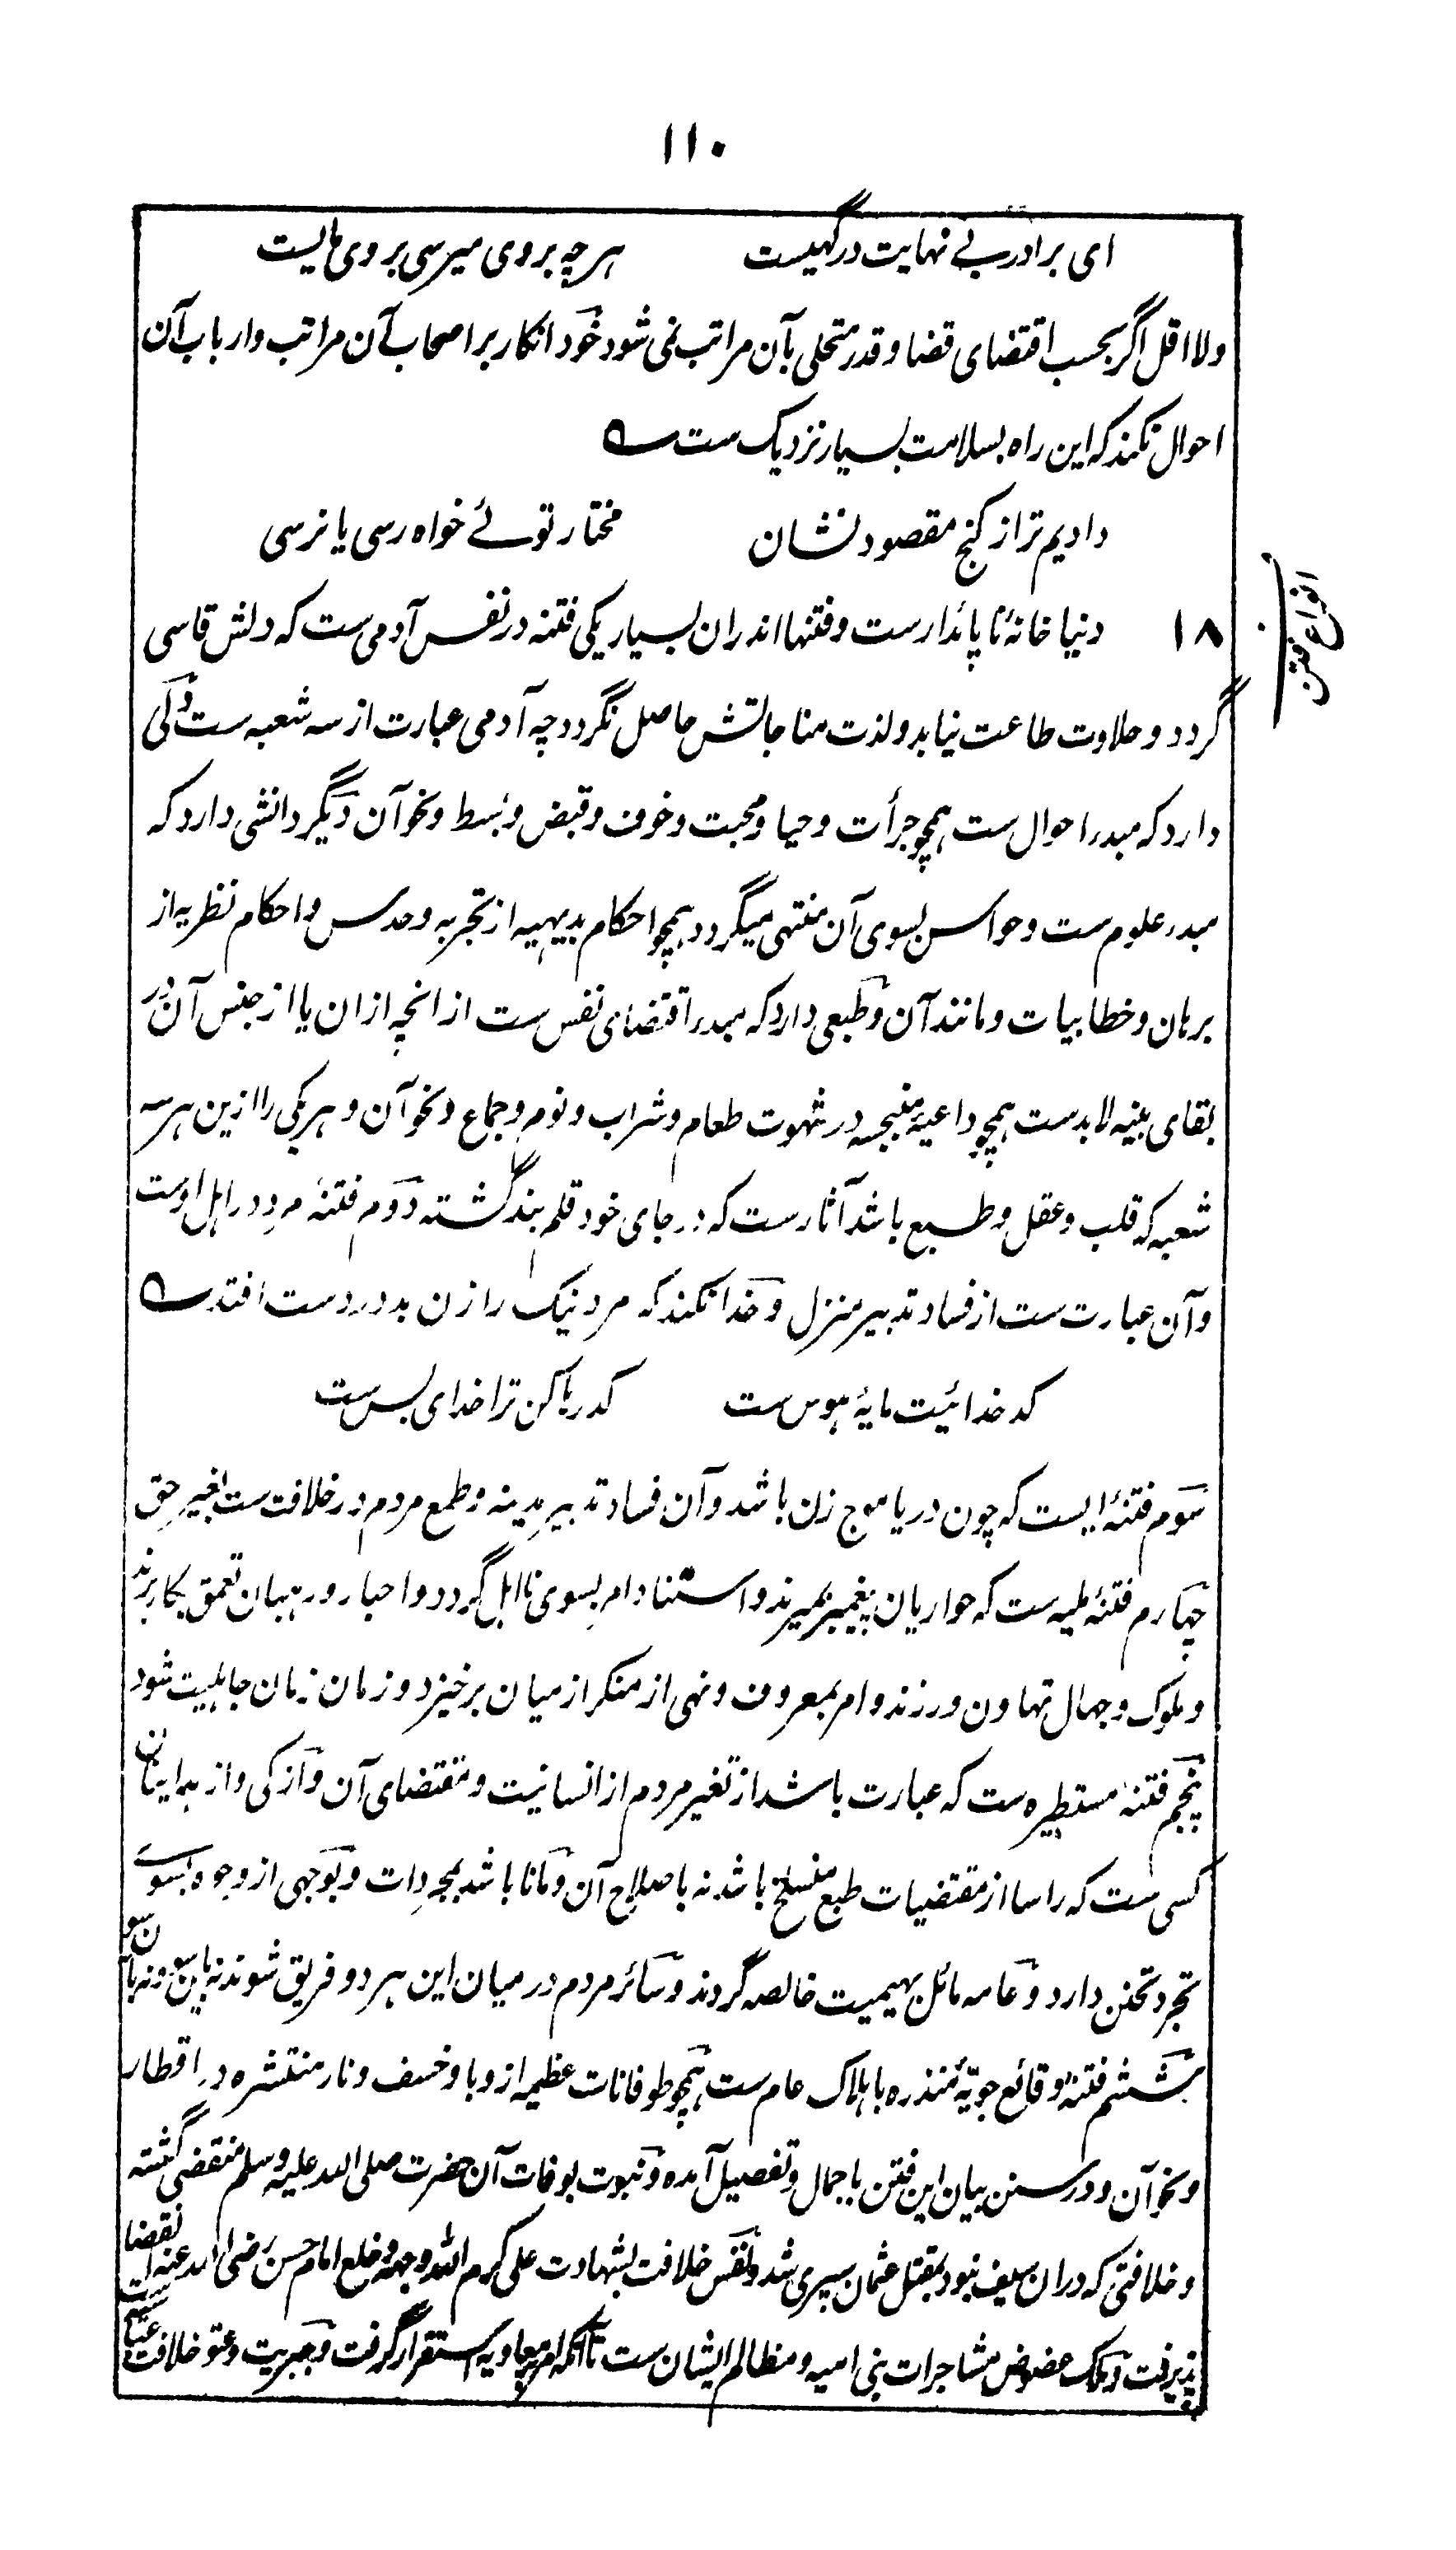 ۱۱۰
ای برادر بے نهایت درگهیست هرچه بروی میرسی بروی مایست
ولا اقل اگر بحسب اقتضای قضا و قدر متحلی بآن مراتب نمی شود خود انکار بر اصحاب آن مراتب و ارباب آن
احوال نکند که این راه بسلامت بسیار نزدیک ست ؎
دادیم ترا ز گنج مقصود نشان مختار توئے خواه رسی یا نرسی
انواع فتن
۱۸ دنیا خانۀ ناپائدارست و فتنها اندران بسیار یکی فتنه در نفس آدمی ست که دلش قاسی
گردد و حلاوت طاعت نیابد و لذت مناجاتش حاصل نگردد چه آدمی عبارت از سه شعبه ست دلی
دارد که مبدء احوال ست همچو جرأت و حیا و محبت و خوف و قبض و بسط و نحو آن دیگر دانشی دارد که
مبدء علوم ست و حواس بسوی آن منتهی میگردد همچو احکام بدیهیه از تجربه و حدس و احکام نظریه از
برهان و خطابیات و مانند آن و طبعی دارد که مبدء اقتضای نفس ست از انچه ازان یا از جنس آن در
بقای بنیه لابدست همچو داعیۀ منبجسه در شهوت طعام و شراب و نوم و جماع و نحو آن و هر یکی را ازین هر سه
شعبه که قلب و عقل و طبع باشد آثارست که در جای خود قلم بند گشته دوم فتنۀ مرد در اهل اوست
و آن عبارت ست از فساد تدبیر منزل و خدا نکند که مرد نیک را زن بد در دست افتد ؎
کدخدائیت مایۀ هوس ست کد رها کن ترا خدای بس ست
سوم فتنۀ ایست که چون دریا موج زن باشد و آن فساد تدبیر مدینه و طمع مردم در خلافت ست بغیر حق
چهارم فتنۀ ملیه ست که حواریان پیغمبر بمیرند و استناد امر بسوی نااهل گردد و احبار و رهبان تعمق بکار برند
و ملوک و جهال تهاون ورزند و امر بمعروف و نهی از منکر از میان برخیزد و زمان زمان جاهلیت شود
پنجم فتنۀ مستطیره ست که عبارت باشد از تغیر مردم از انسانیت و مقتضای آن و ازکی و ازهد اینان
کسی ست که راسا از مقتضیات طبع منسلخ باشد نه باصلاح آن و مانا باشد بمجردات و بوجهی از وجوه بسوے
تجرد تحنن دارد و عامه مائل بهیمیت خالصه گردند و سائر مردم درمیان این هر دو فریق شوند نه باین سو و نه بآن سو
ششم فتنۀ وقائع جویۀ منذره باهلاک عام ست همچو طوفانات عظیمه از وبا و خسف و نار منتشره در اقطار
و نحو آن و در سنن بیان این فتن باجمال و تفصیل آمده و نبوت بوفات آن حضرت صلی الله علیه و سلم منقضی گشته
و خلافتی که دران سیف نبود بقتل عثمان سپری شد و نفس خلافت بشهادت علی کرم الله وجهه و خلع امام حسن رضی الله عنه انقضا
پذیرفت و ملک عضوض مشاجرات بنی امیه و مظالم ایشان ست تا آنکه امر معاویه استقرار گرفت و جبریت و عتو خلافت عباسیه ست